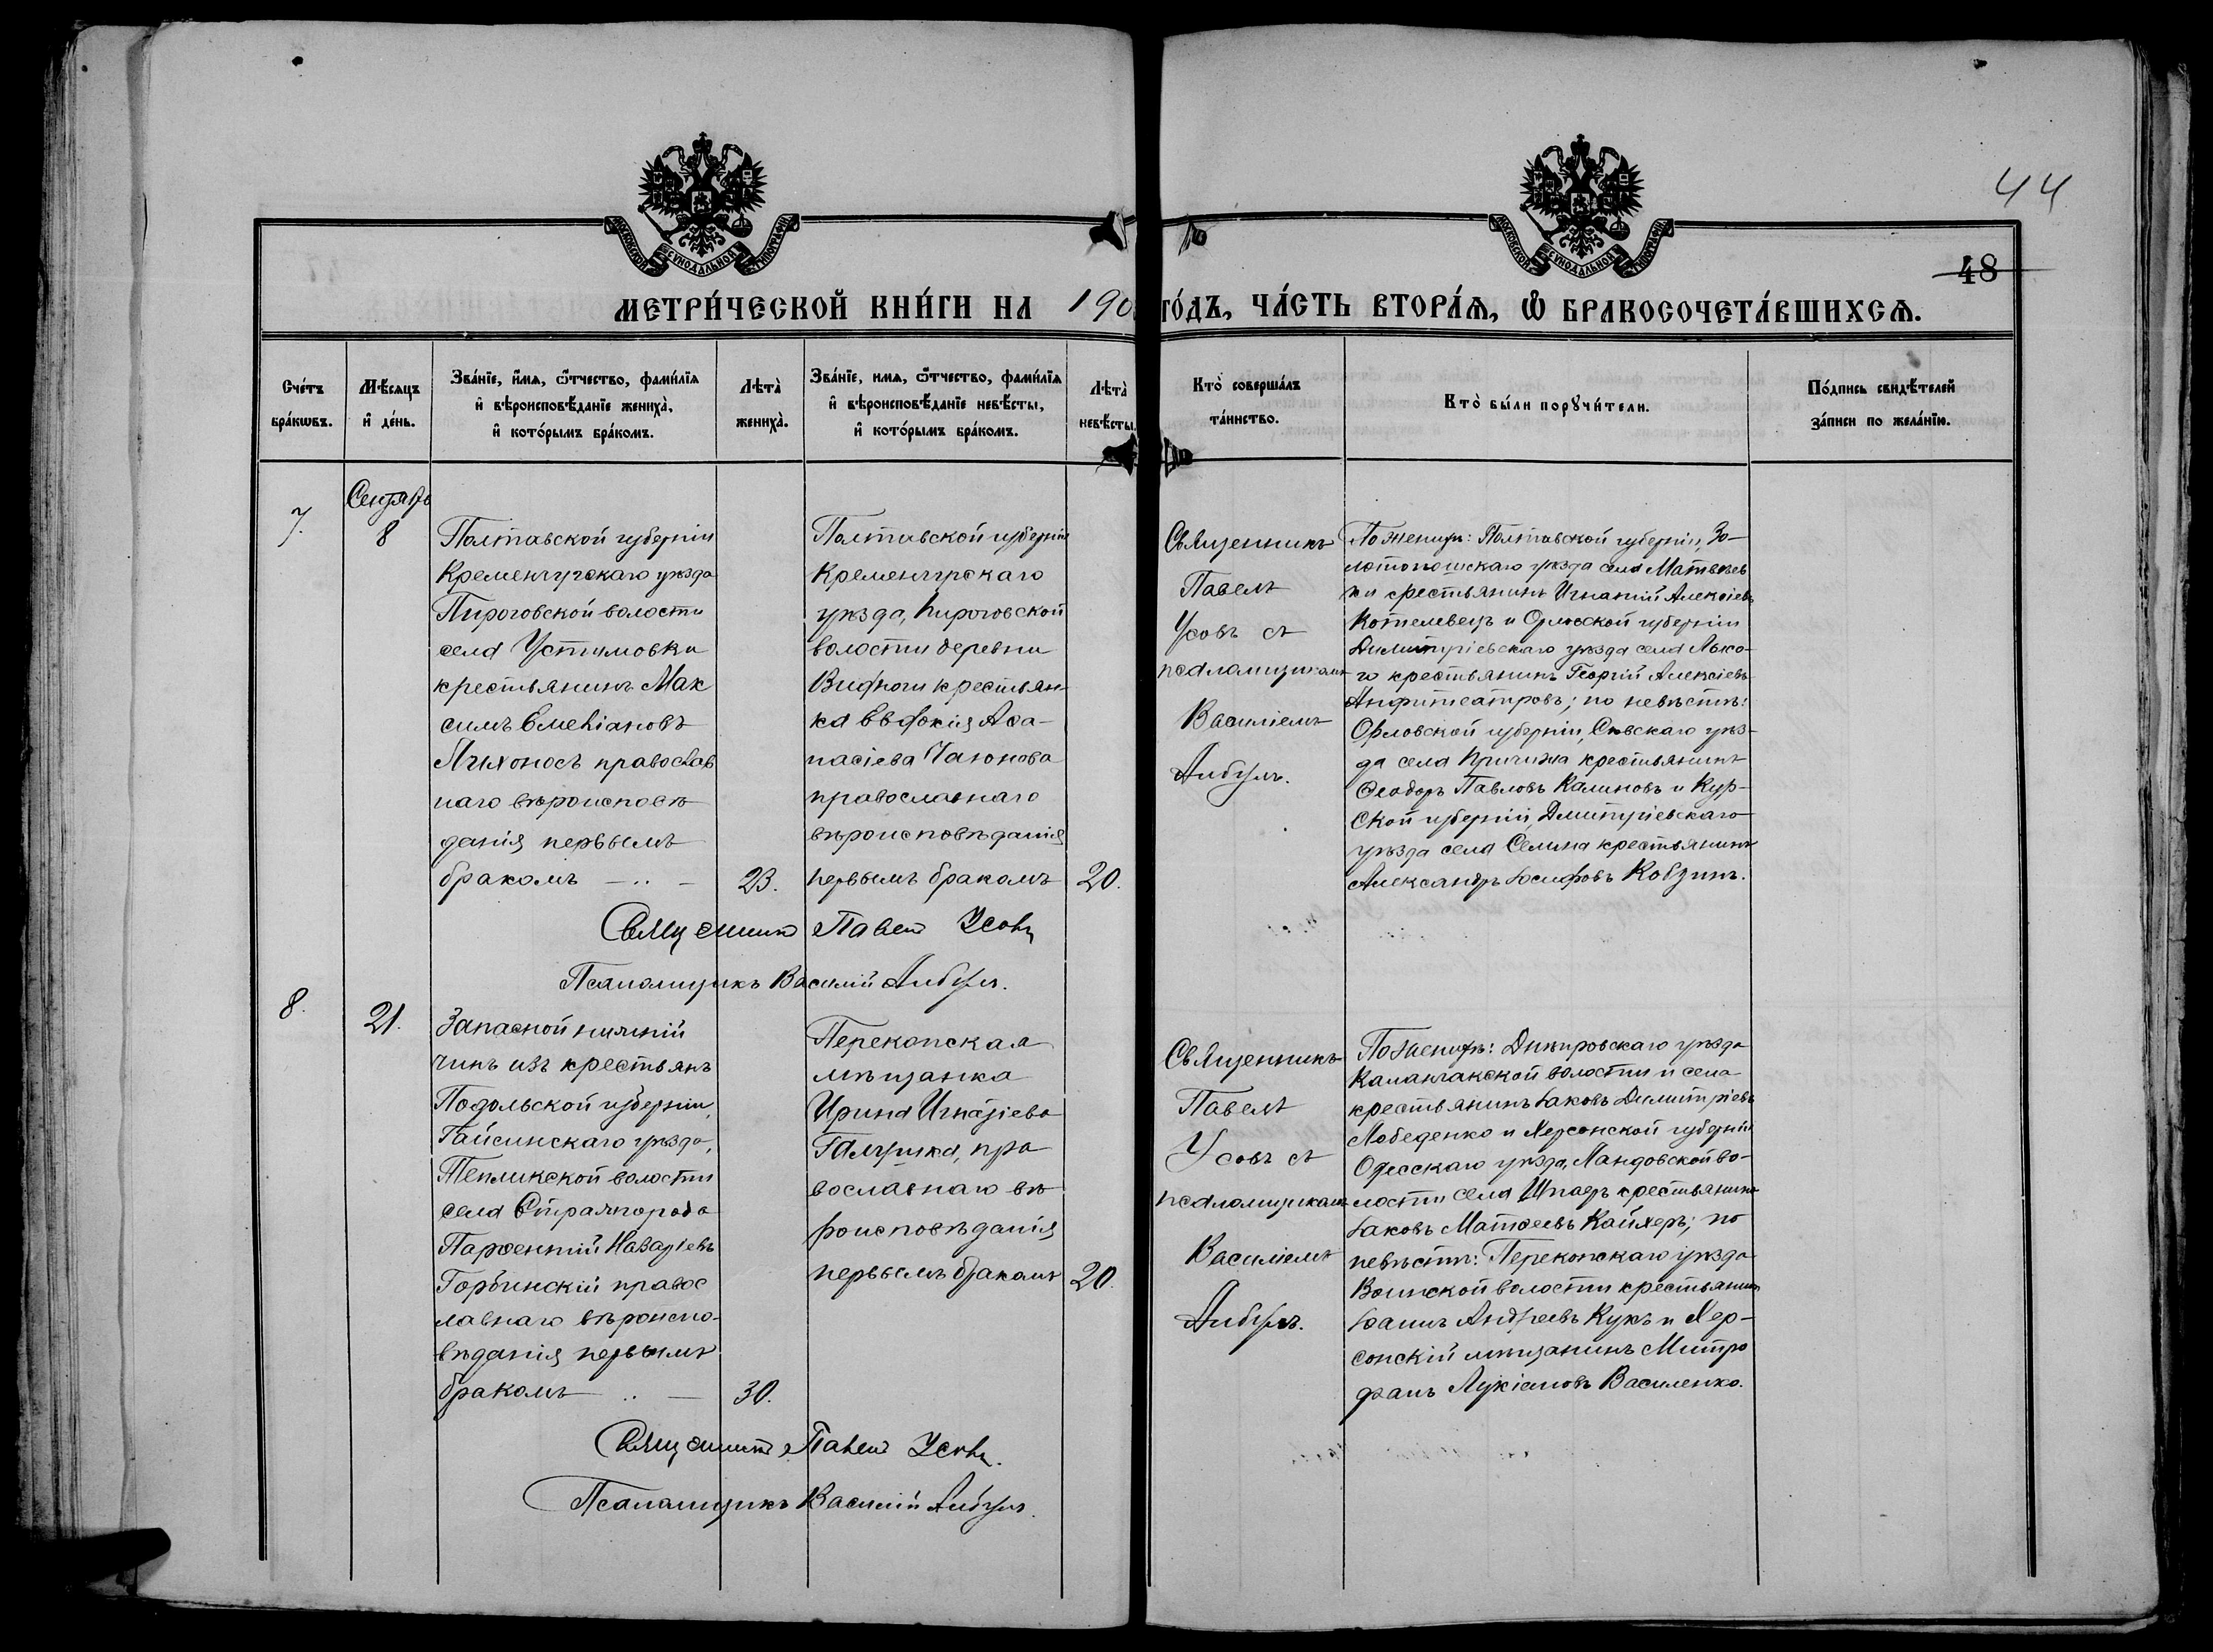 44
48
МОСКОВСКОЙ СѴНОДАЛЬНОЙ ТИПОГРАФІИ
МОСКОВСКОЙ СѴНОДАЛЬНОЙ ТИПОГРАФІИ
МЕТРИ́ЧЕСКОЙ КНИ́ГИ НА 190 ГО́ДЪ, ЧА́СТЬ ВТОРА́Ѧ, Ѽ БРАКОСОЧЕТА́ВШИХСѦ.
Сче́тъ бра́кѡвъ.
Мѣ́сяцъ и҆ де́нь.
Зва́нїе, и҆́мя, ѻ҆́тчество, фами́лїя
и҆ вѣроисповѣ́данїе жениха̀,
и҆ кото́рымъ бра́комъ.
Лѣта̀ жениха̀.
Зва́нїе, имя, ѻ҆́тчество, фами́лїя
и҆ вѣроисповѣ́данїе невѣ́сты,
и҆ кото́рымъ бра́комъ.
Лѣта̀ невѣ́сты.
Кто̀ соверша́лъ
та́инство.
Кто̀ бы́ли порꙋчи́тели.
По́дпись свидѣ́телей
за́писи по жела́нїю.
7.
Сентябрь
8
Полтавской губерніи
Кременчугскаго уѣзда
Пироговской волости
села Устимовки
крестьянинъ Мак
симъ Емеліановъ
Лихоносъ православ
наго вѣроисповѣ
данія первымъ
бракомъ
23.
Полтавской губерніи
Кременчугскаго
уѣзда, Пироговской
волости деревни
крестьян
ка Евдокія Аѳа-
насіева
православнаго
вѣроисповѣданія
первымъ бракомъ
20.
Священникъ
Павелъ
Усовъ съ
псаломщикомъ
Василіемъ
По женихѣ: Полтавской губерніи, Зо-
лотоношскаго уѣзда села Матвѣев
ки крестьянинъ Игнатій Алексіевъ
Котелевецъ и Орловской губерніи
Димитріевскаго уѣзда села
го крестьянинъ Георгій Алексіевъ
Анфитеатровъ; по невѣстѣ:
Орловской губерніи, Сѣвскаго уѣз-
да села крестьянинъ
Ѳеодоръ Павловъ Калиновъ и Кур-
ской губерніи, Дмитріевскаго
уѣзда села Селина крестьянинъ
Александръ Іосифовъ Ковзинъ.
Священникъ Павелъ Усовъ
Псаломщикъ Василій
8.
21.
Запасной нижній
чинъ изъ крестьянъ
Подольской губерніи,
Гайсинскаго уѣзда,
Тепликской волости
села Стражгорода
Парѳеній Назаріевъ
Горбинскій правос
лавнаго вѣроиспо-
вѣданія первымъ
бракомъ
30.
Перекопская
мѣщанка
Ирина Игнатіева
Галушка, пра
вославнаго вѣ
роисповѣданія
первымъ бракомъ
20.
Священникъ
Павелъ
Усовъ съ
псаломщикомъ
Василіемъ
По женихѣ: Днѣпровскаго уѣзда
Каланчакской волости и села
крестьянинъ Іаковъ Димитріевъ
Лобеденко и Херсонской губерніи
Одесскаго уѣзда, Ландовской во-
лости села крестьянинъ
Іаковъ Матѳеевъ Кайзеръ; по
невѣстѣ: Перекопскаго уѣзда
Воинской волости крестьянинъ
Іоаннъ Андреевъ Кукъ и Хер-
сонскій мѣщанинъ Митро
фанъ Лукіановъ Василенко.
Священникъ Павелъ Усовъ.
Псаломщикъ Василій